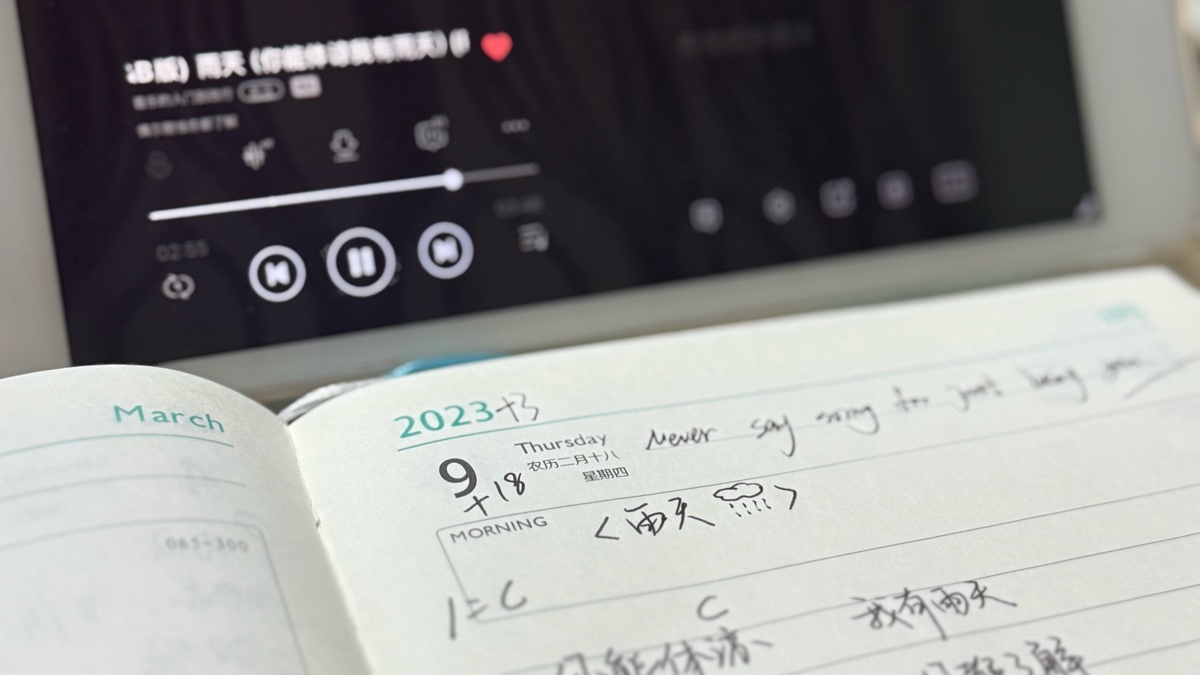 B版) 雨天 (你能体谅我有雨天)
02:55
March
065-300
2023+3
9+18
Thursday
农历二月十八
星期四
Never say sorry for just being you
MORNING
<雨天>
1=C
C
你能体谅、 我有雨天
了解